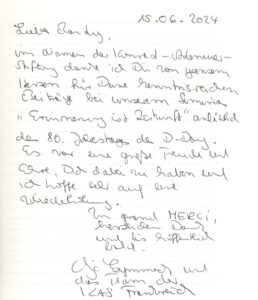 15.06.2024
im Namen der Konrad-Adenauer-
Stiftung danke ich Dir von ganzem
Herzen für Deine kenntnisreichen
Beiträge bei unserem Seminar
"Erinnerung ist Zukunft" anlässlich
des 80. Jahrestages des D-Day.
Es war eine große Freude und
Ehre, Dich dabei zu haben und
ich hoffe sehr auf eine
Wiederholung.
Un grand MERCI,
herzlichen Dank
und bis hoffentlich
bald.
und
das Team der
KAS Frankreich